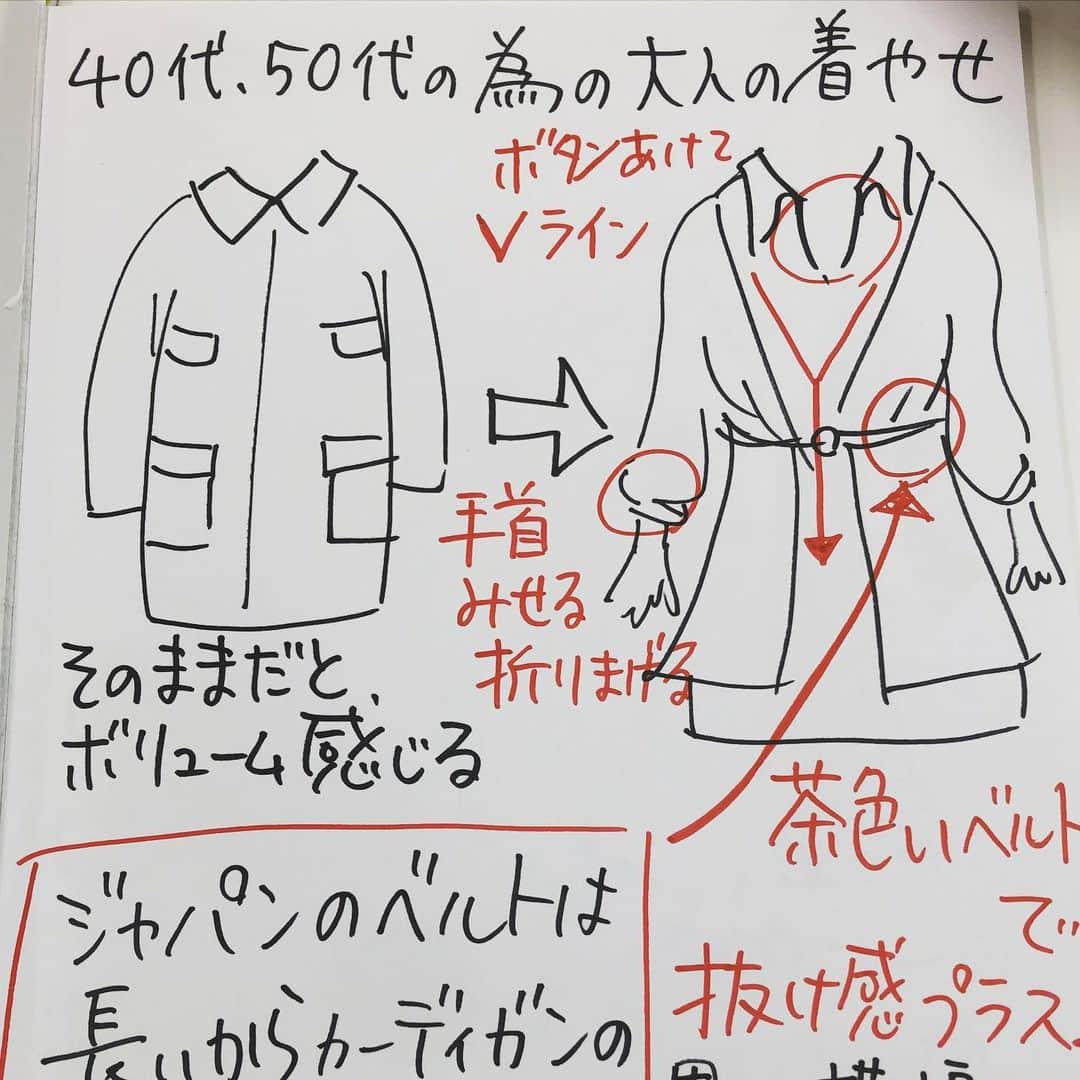 40代、50代の為の大人の着やせ
ボタンあけて
Vライン
手首
みせる
折りまげる
そのままだと、
ボリューム感じる
茶色いベルト
で
抜け感プラス
ジャパンのベルトは
長いからカーディガンの